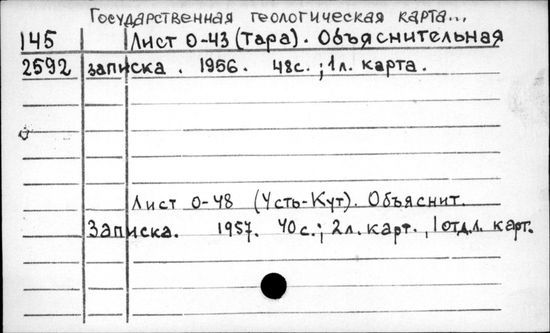 Государственная геологическая карта...
145 Лист О-43 (Тара). Объяснительная
2592 записка. 1956. 48с.; 1л. карта.
Лист О-48 (Усть-Кут). Объяснит.
Записка. 1957. 40с.; 2л. карт., 1 отд.л. карт.